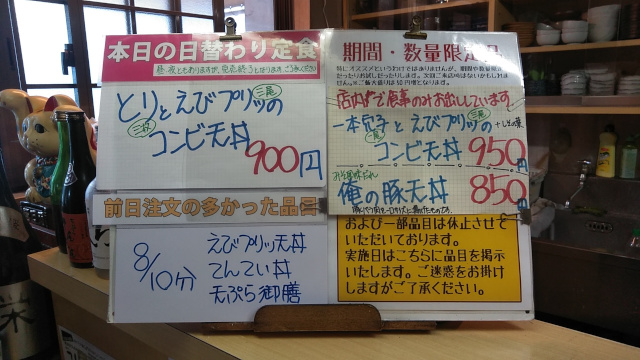 本日の日替わり定食
昼・夜ともありますが、完売終了となります。ご了承ください
とりとえびプリッの
三尾
三枚
コンビ天丼
900円
前日注文の多かった品目
8/10分
えびプリッ天丼
てんてい丼
天ぷら御膳
期間・数量限定品
店内で昼事のみお出ししています。
一本穴子とえびプリッの
三尾
+しその葉
コンビ天丼 950円
みそ風味だれ
俺の豚天丼 850円
および一部品目は休止させて
いただいております。
実施日はこちらに品目を掲示
いたします。ご迷惑をお掛け
しますがご了承ください。